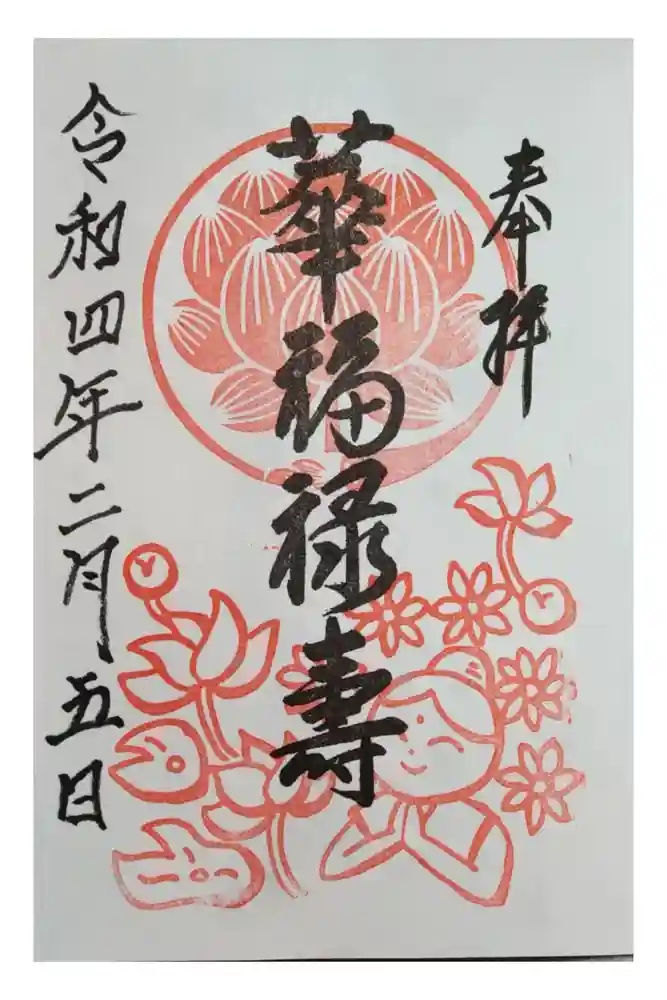 奉拝
華福禄壽
令和四年二月五日